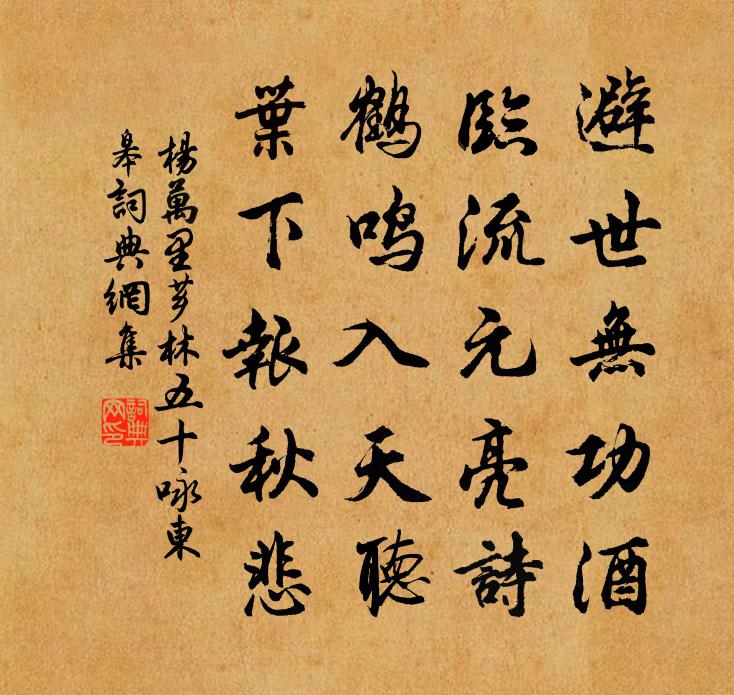 避世無功酒
臨流元亮詩
鶴鳴入天聽
葉下報秋悲
楊萬里芗林五十咏東
皋詞典網集
詞典
网印